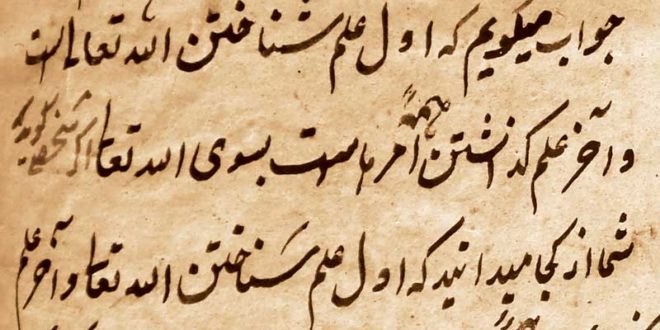 جواب میکویم که اول علم شناختن الله تعالی است
و آخر علم کذاشتن همه امرها است بسوی الله تعالی اکر شخصی کوید که
شما از کجا میدانید که اول علم شناختن الله تعالی و آخر علم